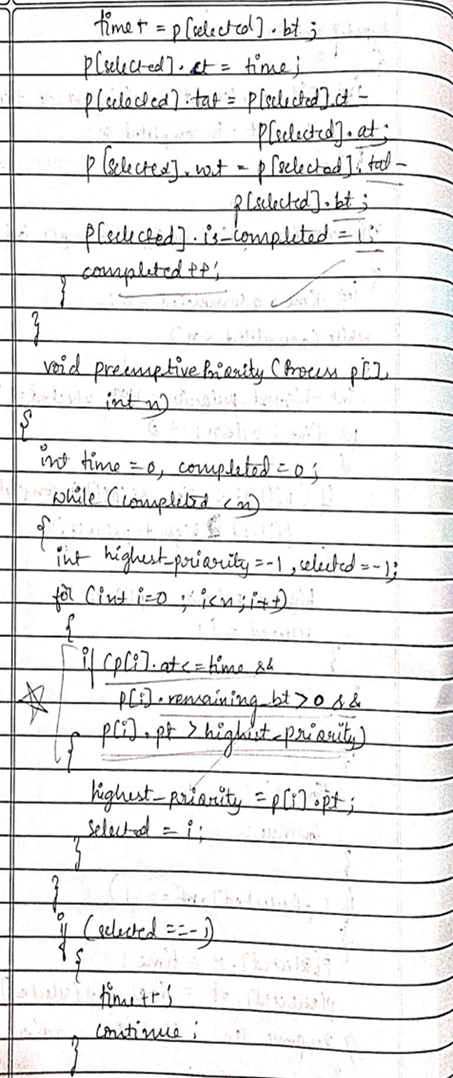 time+ = p[selected].bt;
p[selected].ct = time;
p[selected].tat = p[selected].ct -
p[selected].at;
p[selected].wt = p[selected].tat -
p[selected].bt;
p[selected].is_completed = 1;
completed++;
}
}
void preemptivePriority (Process p[],
int n)
{
int time = 0, completed = 0;
while (completed < n)
{
int highest_priority = -1, selected = -1;
for (int i=0 ; i<n; i++)
{
if (p[i].at <= time &&
p[i].remaining_bt > 0 &&
p[i].pt > highest_priority)
{
highest_priority = p[i].pt;
selected = i;
}
}
if (selected == -1)
{
time++;
continue;
}